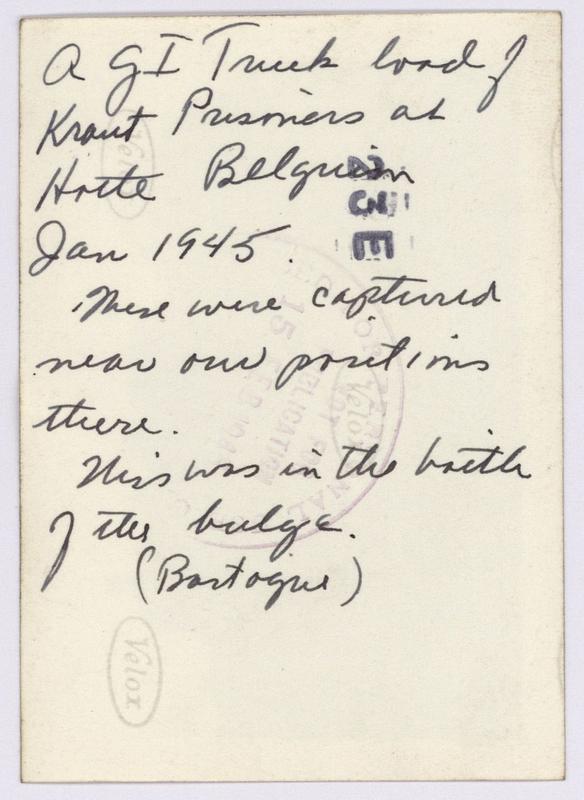 A GI Truck load of
Kraut Prisoners at
Hotte Belguim
Jan 1945.
These were captured
near our positions
there.
This was in the battle
of the bulge.
(Bastogne)
23E
Velox
Velox
Velox
15 FEB
PUBLICATION